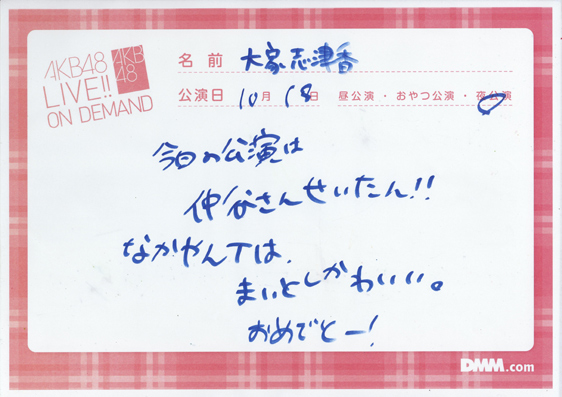 AKB48
LIVE!!
ON DEMAND
AKB
48
名前 大家志津香
公演日 10月18日 昼公演・おやつ公演・夜公演
今日の公演は
仲谷さんせいたん!!
なかやんTは、
まいとしかわいい。
おめでとー!
DMM.com